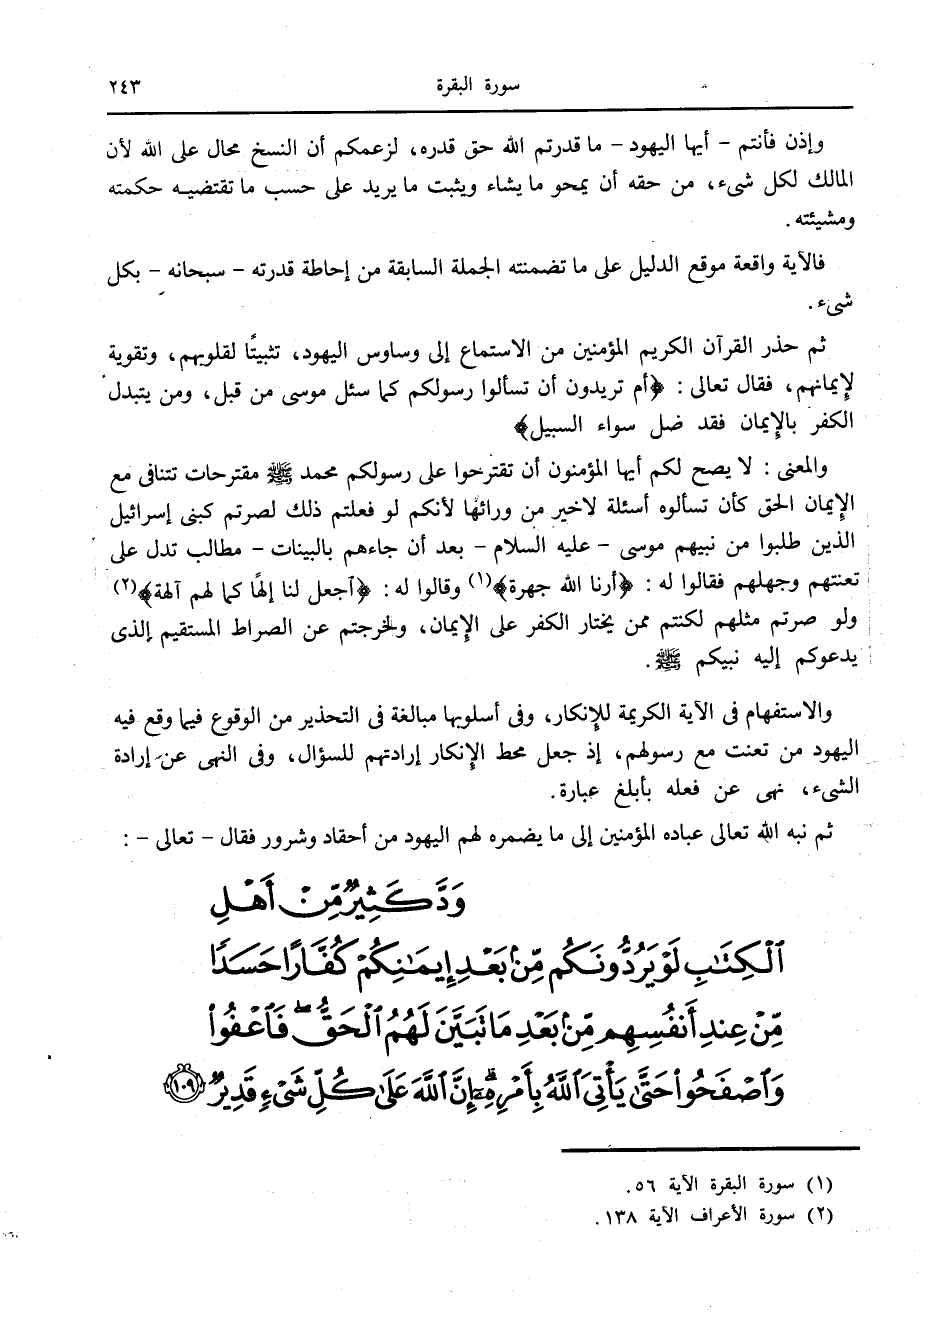 سورة البقرة ٢٤٣
وإذن فأنتم – أيها اليهود – ما قدرتم الله حق قدره، لزعمكم أن النسخ محال على الله لأن
المالك لكل شىء، من حقه أن يمحو ما يشاء ويثبت ما يريد على حسب ما تقتضيه حكمته
ومشيئته.
فالآية واقعة موقع الدليل على ما تضمنته الجملة السابقة من إحاطة قدرته – سبحانه – بكل
شىء.
ثم حذر القرآن الكريم المؤمنين من الاستماع إلى وساوس اليهود، تثبيتًا لقلوبهم، وتقوية
لإيمانهم، فقال تعالى : ﴿أم تريدون أن تسألوا رسولكم كما سئل موسى من قبل، ومن يتبدل
الكفر بالإيمان فقد ضل سواء السبيل﴾
والمعنى : لا يصح لكم أيها المؤمنون أن تقترحوا على رسولكم محمد ﷺ مقترحات تتنافى مع
الإيمان الحق كأن تسألوه أسئلة لاخير من ورائها لأنكم لو فعلتم ذلك لصرتم كبنى إسرائيل
الذين طلبوا من نبيهم موسى – عليه السلام – بعد أن جاءهم بالبينات – مطالب تدل على
تعنتهم وجهلهم فقالوا له : ﴿أرنا الله جهرة﴾(١) وقالوا له : ﴿آجعل لنا إلهًا كما لهم آلهة﴾(٢)
ولو صرتم مثلهم لكنتم ممن يختار الكفر على الإيمان، ولخرجتم عن الصراط المستقيم الذى
يدعوكم إليه نبيكم ﷺ.
والاستفهام فى الآية الكريمة للإنكار، وفى أسلوبها مبالغة فى التحذير من الوقوع فيما وقع فيه
اليهود من تعنت مع رسولهم، إذ جعل محط الإنكار إرادتهم للسؤال، وفى النهى عن إرادة
الشىء، نهى عن فعله بأبلغ عبارة.
ثم نبه الله تعالى عباده المؤمنين إلى ما يضمره لهم اليهود من أحقاد وشرور فقال – تعالى – :
وَدَّ كَثِيرٌ مِّنْ أَهْلِ
ٱلْكِتَٰبِ لَوْ يَرُدُّونَكُم مِّنۢ بَعْدِ إِيمَٰنِكُمْ كُفَّارًا حَسَدًا
مِّنْ عِندِ أَنفُسِهِم مِّنۢ بَعْدِ مَا تَبَيَّنَ لَهُمُ ٱلْحَقُّ ۖ فَٱعْفُوا۟
وَٱصْفَحُوا۟ حَتَّىٰ يَأْتِىَ ٱللَّهُ بِأَمْرِهِۦٓ ۗ إِنَّ ٱللَّهَ عَلَىٰ كُلِّ شَىْءٍ قَدِيرٌ ١٠٩
(١) سورة البقرة الآية ٥٦.
(٢) سورة الأعراف الآية ١٣٨.